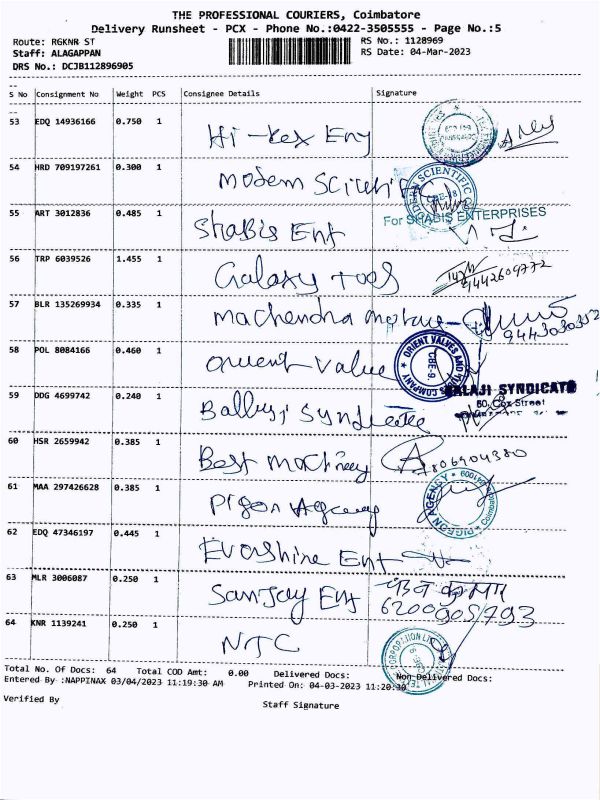 THE PROFESSIONAL COURIERS, Coimbatore
Delivery Runsheet - PCX - Phone No.:0422-3505555 - Page No.:5
Route: RGKNR ST
RS No.: 1128969
Staff: ALAGAPPAN
RS Date: 04-Mar-2023
DRS No.: DCJB112896905
S No Consignment No Weight PCS Consignee Details Signature
53 EDQ 14936166 0.750 1 Hi-Rex Eng
54 HRD 709197261 0.300 1 Modern
55 ART 3012836 0.485 1 Shabis Ent
For SHABIS ENTERPRISES
56 TRP 6039526 1.455 1 Galaxy Tools
9442609772
57 BLR 135269934 0.335 1 Machendra
58 POL 8084166 0.460 1 Orient Value
ORIENT VALVES AND COMPANY
CBE-9
59 DDG 4699742 0.240 1 Syndicate
BALAJI SYNDICATE
50, Cox Street
60 HSR 2659942 0.385 1 Best Machinery
7806904380
61 MAA 297426628 0.385 1 Pigon Agency
PIGEON AGENCY
62 EDQ 47346197 0.445 1 Evershine Ent
63 MLR 3006087 0.250 1 Sanjay Ent
64 KNR 1139241 0.250 1 NTC
Total No. Of Docs: 64 Total COD Amt: 0.00 Delivered Docs: Non Delivered Docs:
Entered By :NAPPINAX 03/04/2023 11:19:30 AM Printed On: 04-03-2023 11:20:30
Verified By
Staff Signature